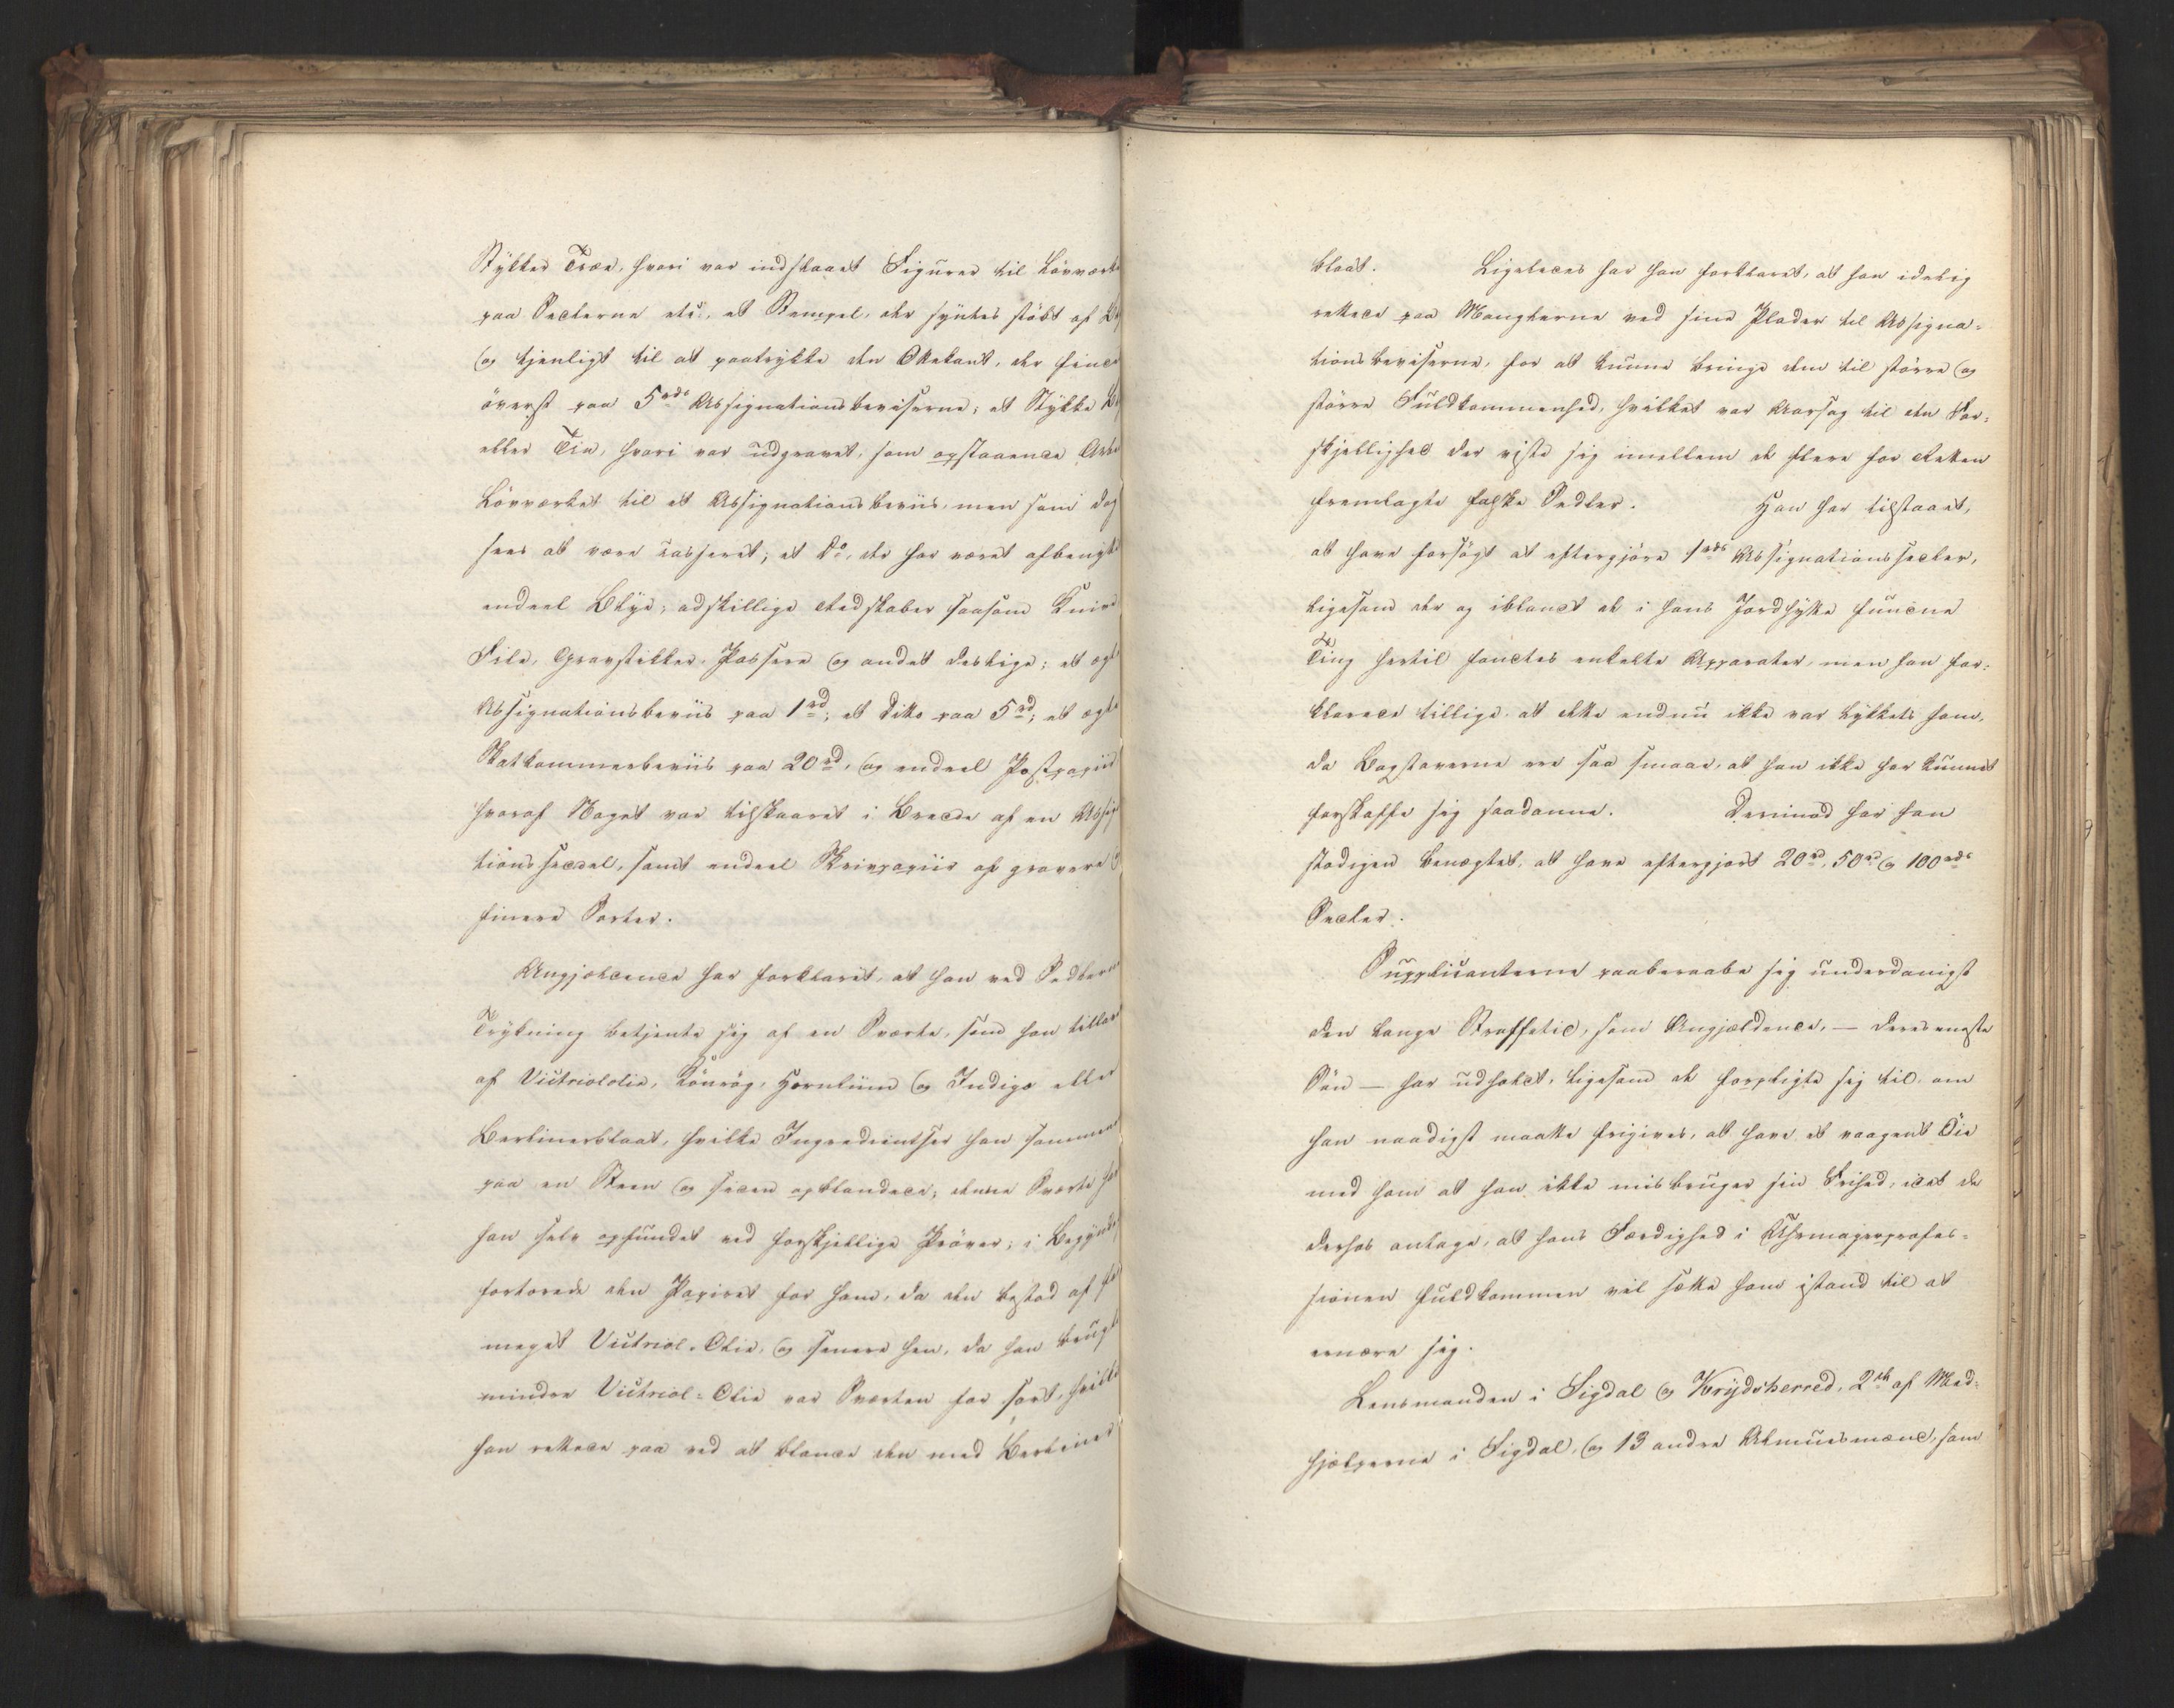 Stykker Træe, hvori var indskaaret Figurer til Lövværket
paa Sedlerne etc., et Stempel, der syntes støbt af
og tjenligt til at paatrykke den Ottekant, der findes
överst paa 5 rds Assignationsbeviserne; et Stykke
eller Tin, hvori var udgravet, som opstaaende
Lövværket til et Assignationsbeviis, men som dog
sees at være casseret; et Do, der har været afbenyttet
endeel Blye; adskillige Redskaber saasom Knive
File, Gravstikker, Passere og andet deslige; et ægte
Assignationsbeviis paa 1 rd; et Ditto paa 5 rd; et ægte
Skatkammerbeviis paa 20 rd, og endeel Postpapiir
hvoraf Noget var tilskaaret i Brede af en Assigna
tionsseddel, samt endeel Skrivpapiir af grovere og
finere Sorter.
Angjeldende har forklaret, at han ved Sedlernes
Trykning betjente sig af en Sværte, som han tillavede
af Victriololie, Könrög, Hornliim og Indigo eller
Berlinerblaat, hvilke Ingredientser han sammen
paa en Steen og siden opblandede; denne Sværte har
han selv opfundet ved forskjellige Pröver; i Begyndelsen
fortærede den Papiret for ham, da den bestod af for
meget Victriol-Olie, og senere hen, da han brugte
mindre Victriol-Olie var Sværten for sort, hvilket
han rettede paa ved at blande den med Berliner
blaat. Ligeledes har han forklaret, at han idelig
rettede paa Manglerne ved sine Plader til Assigna-
tionsbeviserne, for at kunne bringe dem til större og
större Fuldkommenhed, hvilket var Aarsag til den For-
skjellighed der viste sig imellem de flere for Retten
fremlagte falske Sedler. Han har tilstaaet,
at have forsögt at eftergjöre 1 rds Assignationssedler,
ligesom der og iblandt de i hans Jordhytte fundne
Ting hertil fandtes enkelte Apparater, men han for-
klarede tillige at dette endnu ikke var lykkets ham,
da Bogstaverne ere saa smaae, at han ikke har kunnet
forskaffe sig saadanne. Derimod har han
stadigen benægtet, at have eftergjort 20 rd, 50 rd og 100 rds
Sedler.
Supplicanterne paaberaabe sig underdanigst
den lange Straffetid, som Angjældende, — deres eneste
Sön — har udholdt, ligesom de forpligte sig til, om
han naadigst maatte frigives, at have et vaagent Öie
med ham at han ikke misbruger sin Frihed, idet de
derhos antage, at hans Færdighed i Uhrmagerprofes-
sionen fuldkommen vil sætte ham istand til at
ernære sig.
Lensmanden i Sigdal og Krydsherred, 2de af Med-
hjælperne i Sigdal, og 13 andre Almuesmænd, som